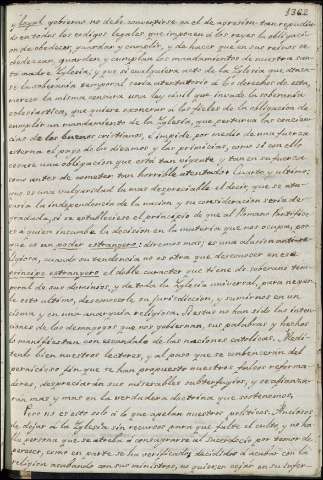 1362
y legal gobierno no debe convertirse en el de opresion tan repudia-
do en todos los codigos legales que imponen a los reyes la obligaci-
on de obedecer, guardar y cumplir, y de hacer que en sus reinos se
obedezcan, guarden y cumplan los mandamientos de nuestra san-
ta madre Yglesia; y que si cualquiera acto de la Yglesia que ataca-
se la soberania temporal seria atentatorio de los derechos de esta,
merece la misma censura una ley civil que invade la soberania
eclesiastica, que quiere exonerar a los fieles de la obligacion de
cumplir un mandamiento de la Yglesia, que perturva las concien-
cias de los buenos cristianos, é impide, por medio de una fuerza
esterna el pago de los diezmos y las primicias, como si con ello
cesase una obligacion que está tan vigente y tan en su fuerza
como antes de cometer tan horrible atentado. Cuarto y ultimo;
que es una vulgaridad la mas despreciable el decir, que se ata-
caria la independencia de la nacion y su consideracion seria de-
gradada, si se estableciese el principio de que al Romano Pontifice
es a quien incumbe la decision en la materia que nos ocupa, por
que es un poder estrangero: diremos mas; es una alusion
ligiosa, cuando su tendencia no es otra que desconocer en ese
principe estrangero el doble caracter que tiene de soberano tem-
poral de sus dominios, y de toda la Yglesia universal, para negar-
le este ultimo, desconocerle su jurisdiccion, y sumirnos en un
cisma y en una anarquia religiosa. Y estas no han sido las inten-
ciones de los demagogos que nos gobiernan, sus palabras y hechos
lo manifiestan con escandalo de las naciones catolicas. Medi-
tenlo bien nuestros lectores, y al paso que se convenceran del
pernicioso fin que se han propuesto nuestros falsos reforma-
dores, despreciarán sus miserables subterfugios, y se afianza-
ran mas y mas en la verdadera doctrina que sostenemos.
Pero no es esto solo á lo que apelan nuestros politicos. Ansiosos
de dejar á la Yglesia sin recursos para que falte el culto, y no ha-
ya persona que se atreba á consagrarse al Sacerdocio por temor de
perecer, como en parte se ha verificado; decididos á acabar con la
religion acabando con sus ministros, no quieren cejar en su infer-